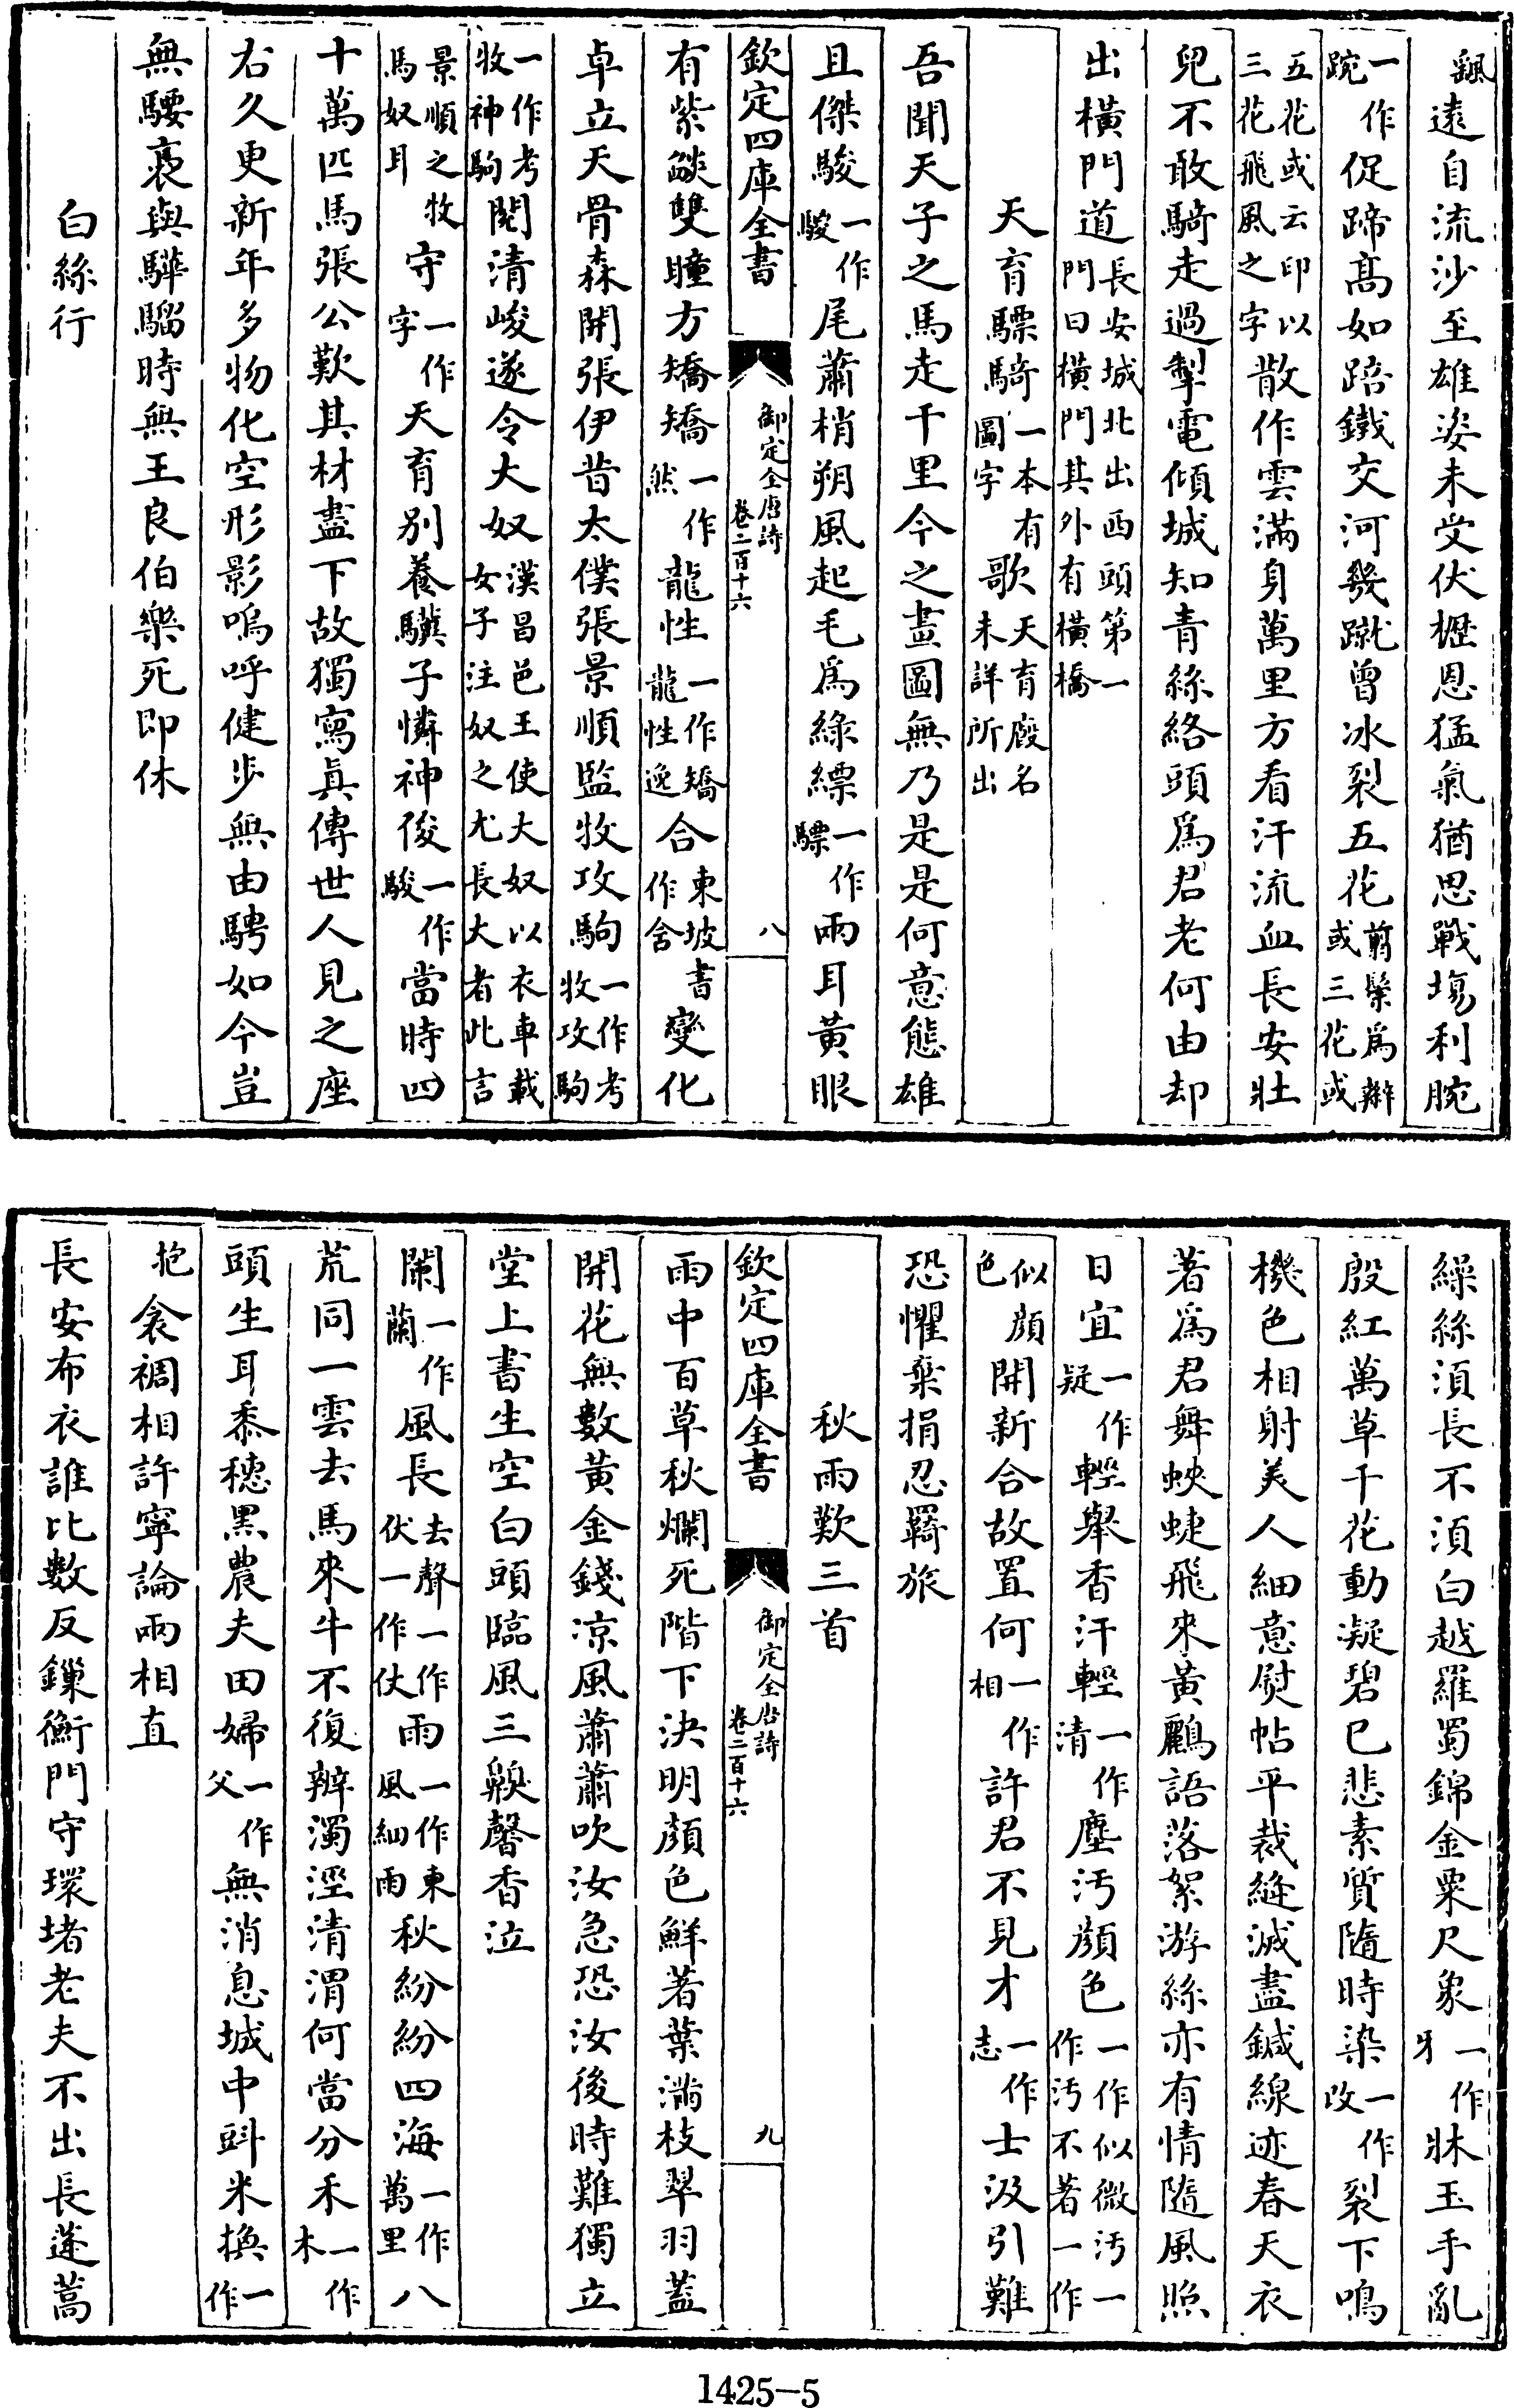 飄遠自流沙至雄姿未受伏櫪恩猛氣猶思戰塲利腕
一作踠促蹄髙如踣鐵交河幾蹴曾冰裂五花剪鬃為辮或三花或
五花或云印以三花飛風之字散作雲滿身萬里方看汗流血長安壯
兒不敢騎走過掣電傾城知青絲絡頭為君老何由却
出橫門道長安城北出西頭第一門曰橫門其外有橫橋
天育驃騎一本有圖字歌天育廏名未詳所出
吾聞天子之馬走千里今之畫圖無乃是是何意態雄
且傑駿一作駿尾蕭梢朔風起毛為綠縹一作驃兩耳黃眼
欽定四庫全書 御定全唐詩卷二百十六 八
有紫燄雙瞳方矯矯一作然龍性一作矯龍性逸合東坡書作含變化
卓立天骨森開張伊昔太僕張景順監牧攻駒一作考牧攻駒
一作考牧神駒閱清峻遂令大奴漢昌邑王使大奴以衣車載女子注奴之尤長大者此言
景順之牧馬奴耳守一作字天育别養驥子憐神俊一作駿當時四
十萬匹馬張公歎其材盡下故獨寫真傳世人見之座
右久更新年多物化空形影嗚呼健步無由騁如今豈
無騕褭與驊騮時無王良伯樂死即休
白絲行
繰絲湏長不湏白越羅蜀錦金粟尺象一作牙牀玉手亂
殷紅萬草千花動凝碧已悲素質隨時染一作改裂下鳴
機色相射美人細意熨帖平裁縫滅盡鍼線迹春天衣
著為君舞蛺蜨飛來黃鸝語落絮游絲亦有情隨風照
日宜一作疑輕舉香汗輕一作清塵汚顔色一作似微汚一作汚不著一作
似顔色開新合故置何一作相許君不見才一作志士汲引難
恐懼棄捐忍羇旅
秋雨歎三首
欽定四庫全書 御定全唐詩卷二百十六 九
雨中百草秋爛死階下決明顔色鮮著葉滿枝翠羽蓋
開花無數黃金錢凉風蕭蕭吹汝急恐汝後時難獨立
堂上書生空白頭臨風三嗅馨香泣
闌一作蘭風長去聲一作伏一作仗雨一作東風細雨秋紛紛四海一作萬里八
荒同一雲去馬來牛不復辨濁涇清渭何當分禾一作木
頭生耳黍穗黑農夫田婦一作父無消息城中㪷米換一作
抱衾裯相許寧論兩相直
長安布衣誰比數反鏁衡門守環堵老夫不出長蓬蒿
1425-5